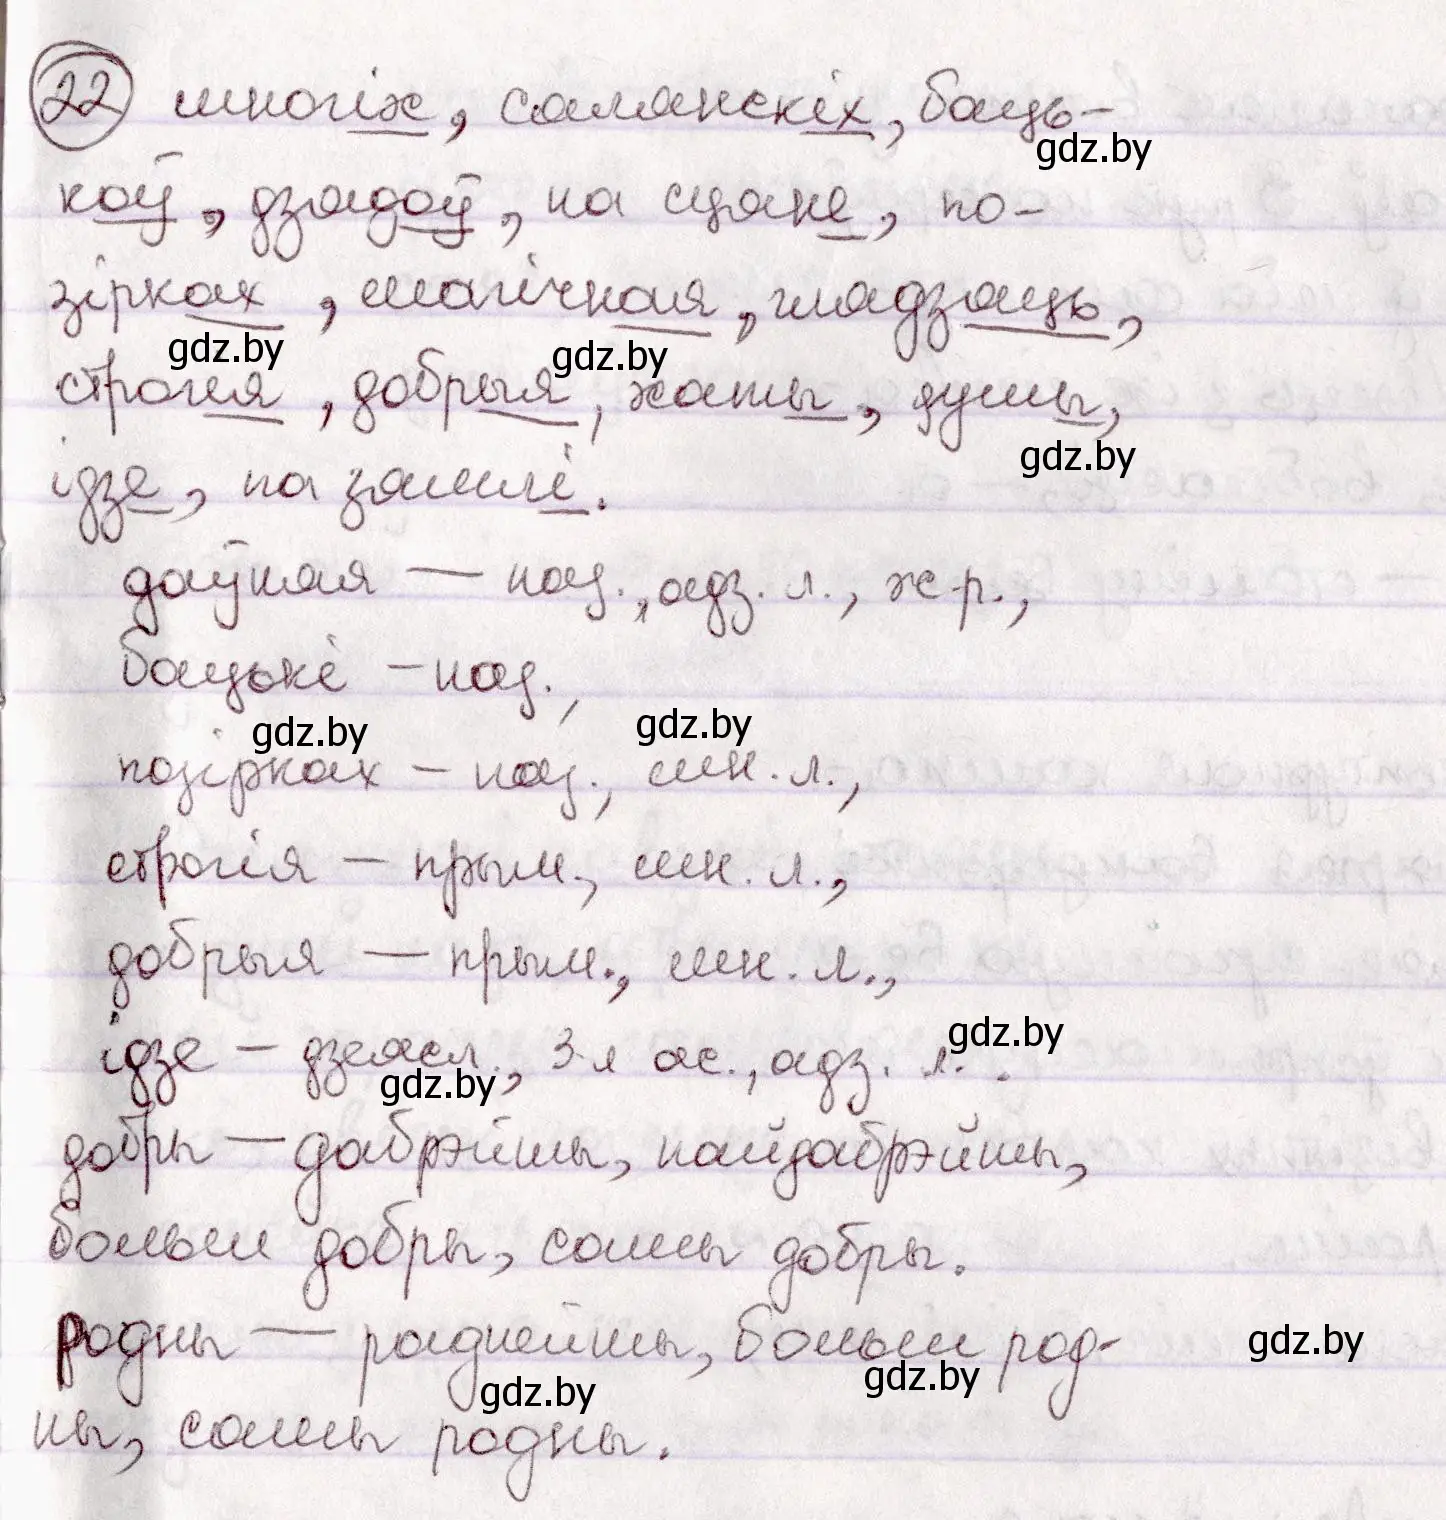 22 многіх, саманскіх, баць-
gdz.by
коў, дзядоў, на сцяне, по-
зірках, магічная, глядзяць,
gdz.by gdz.by
строгія, добрыя, хаты, душы,
gdz.by
ідзе, на зямлі.
даўняя — наз., адз. л., ж.р.,
бацькі – наз.,
gdz.by gdz.by
позірках – наз., мн. л.,
строгія – прым., мн. л.,
добрыя — прым., мн. л.,
gdz.by
ідзе – дзеясл., 3-я ас., адз. л..
gdz.by
добры — дабрэйшы, найдабрэйшы,
больш добры, самы добры.
родны — раднейшы, больш род-
gdz.by
gdz.by gdz.by
ны, самы родны.